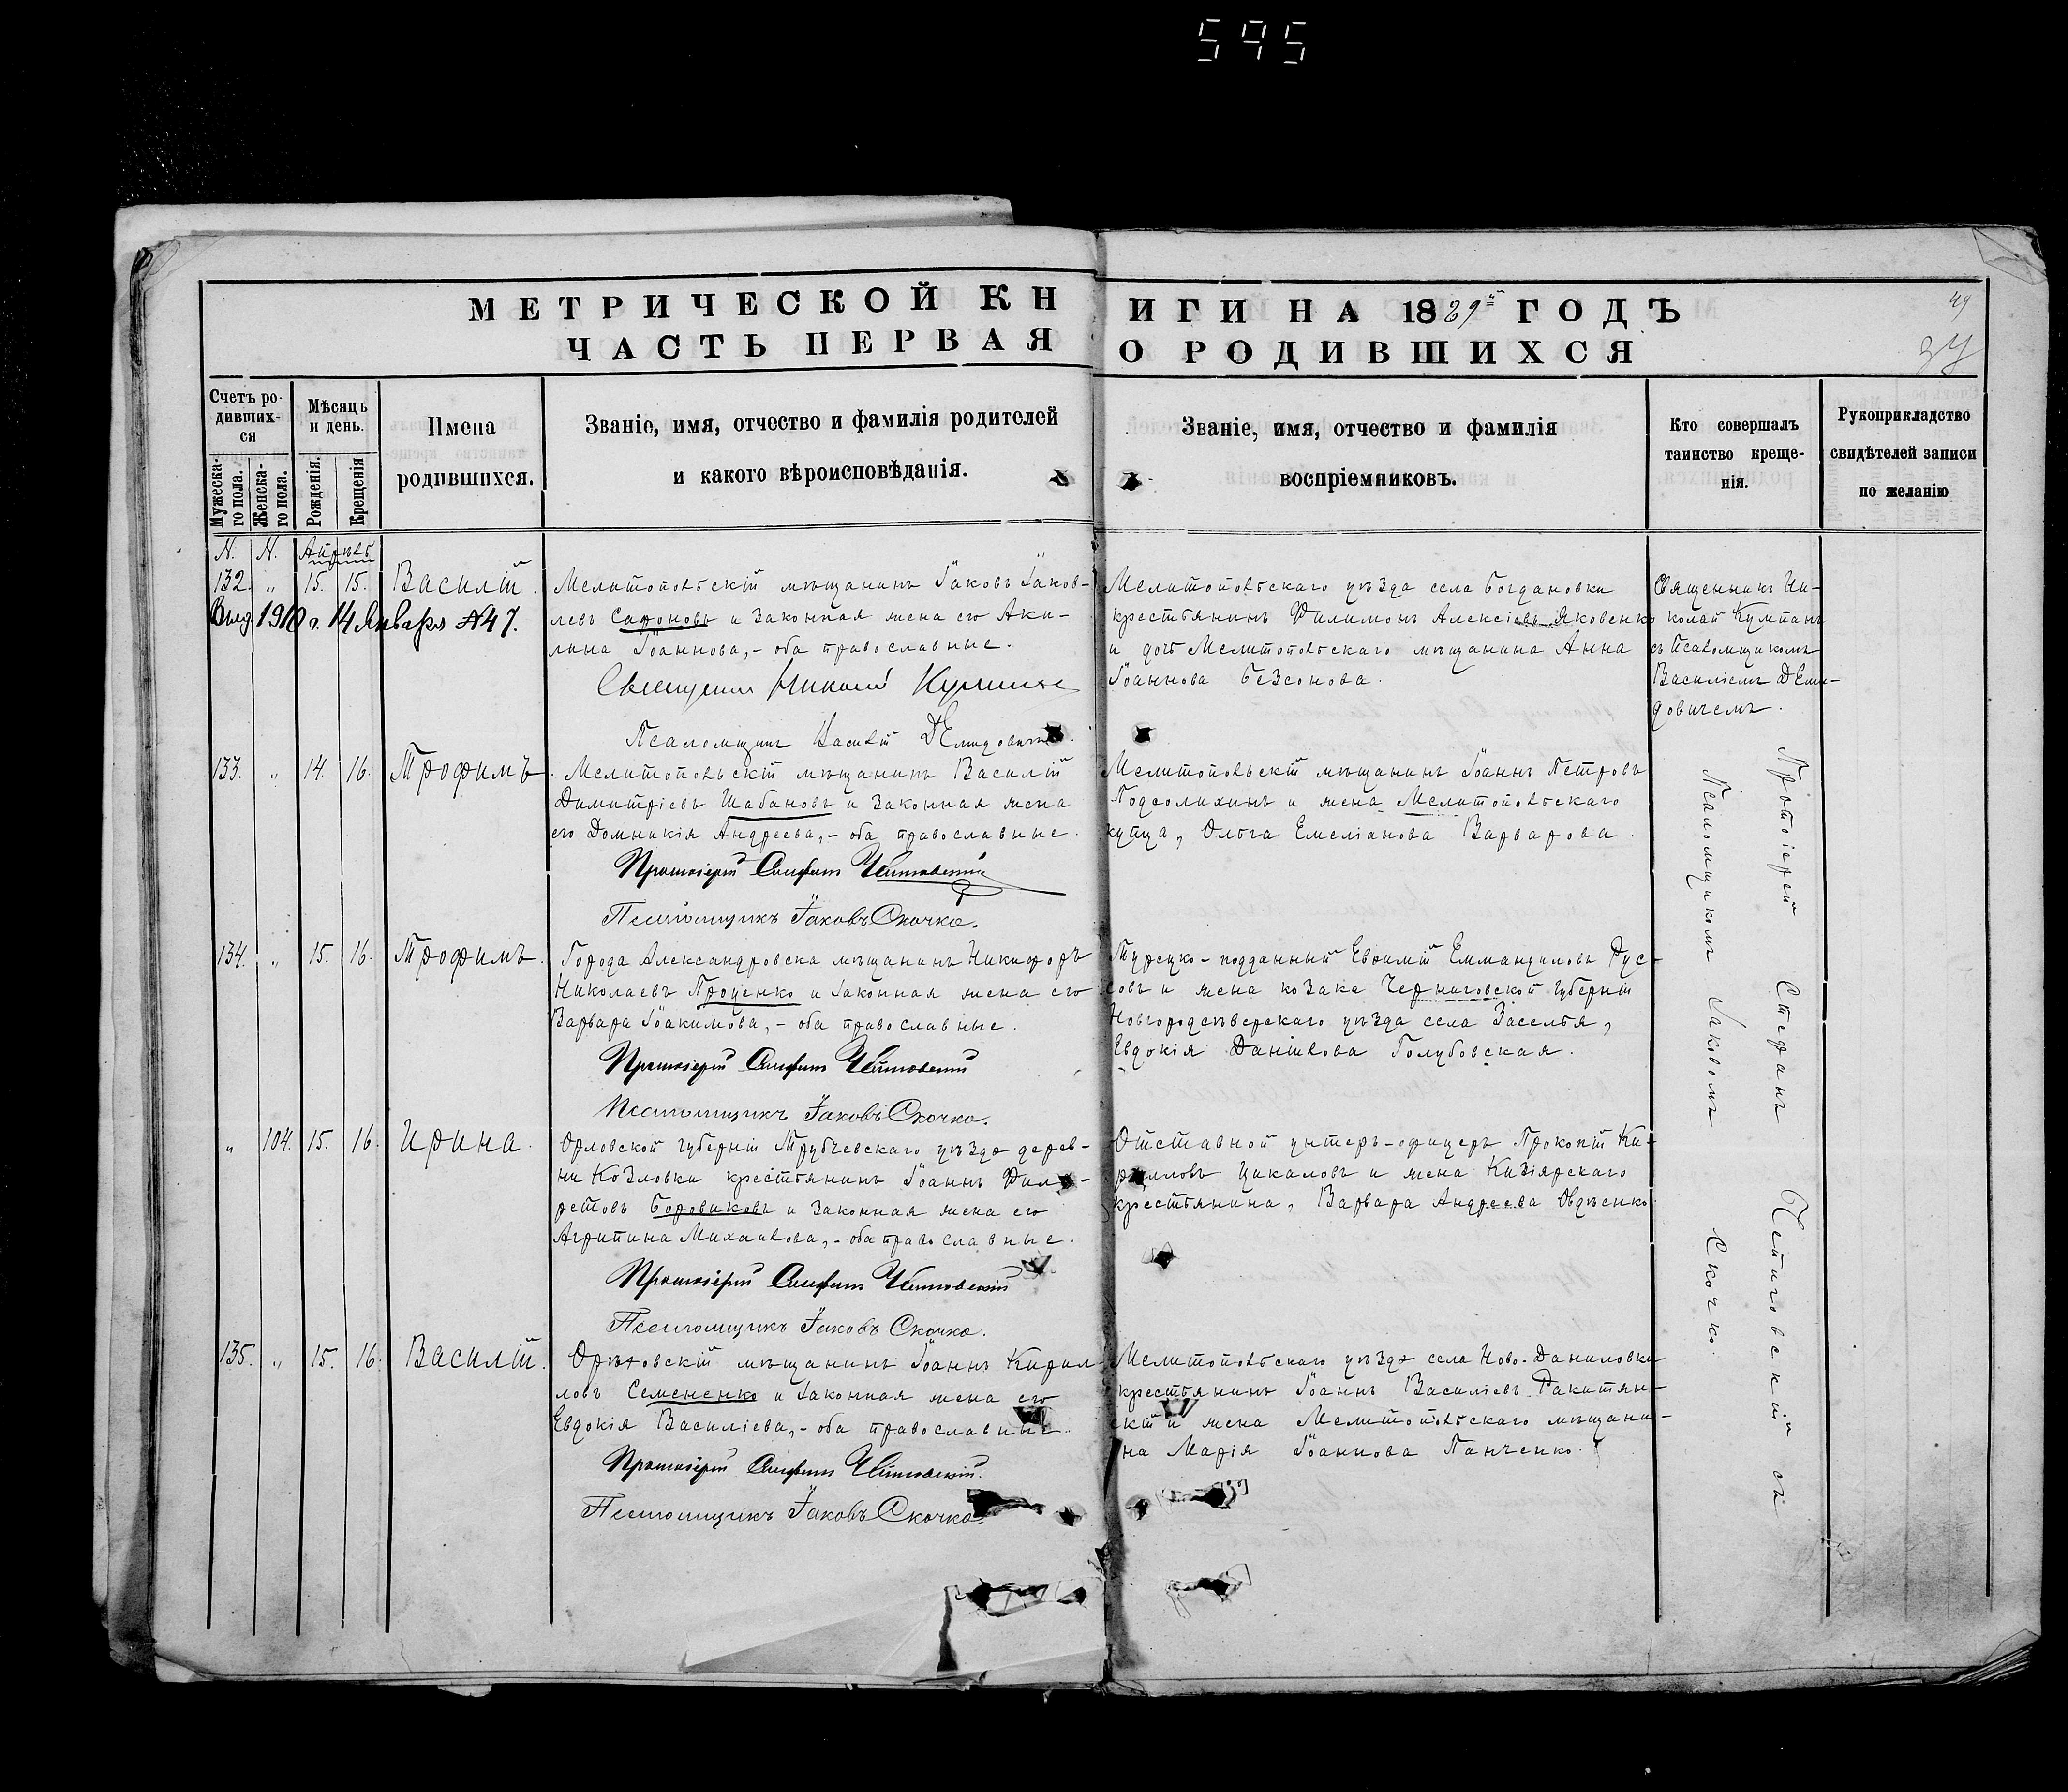 595
МЕТРИЧЕСКОЙ КНИГИ НА 1889й ГОДЪ
49
ЧАСТЬ ПЕРВАЯ О РОДИВШИХСЯ
Счетъ ро-
дивших-
ся
Мужеска-
го пола.
Женска-
го пола.
Мѣсяцъ
и день.
Рожденія.
Крещенія
Имена
родившихся.
Званіе, имя, отчество и фамилія родителей
и какого вѣроисповѣданія.
Званіе, имя, отчество и фамилія
воспріемниковъ.
Кто совершалъ
таинство креще-
нія.
Рукоприкладство
свидѣтелей записи
по желанію
N. N. Апрѣль
132. „ 15. 15. Василій.
Выд 1910 г. 14 Января №47.
Мелитопольскій мѣщанинъ Іаковъ Іаков-
левъ Сафоновъ и законная жена его Аки-
лина Іоаннова,- оба православные.
Священникъ Николай
Псаломщикъ Василій Демидовичъ.
Мелитопольскаго уѣзда села Богдановки
крестьянинъ Филимонъ Алексіевъ Яковенко
и дочь Мелитопольскаго мѣщанина Анна
Іоаннова Безсонова.
Священникъ Ни-
колай Кумпанъ
съ Псаломщикомъ
Василіемъ Деми-
довичемъ.
133. „ 14. 16. Трофимъ
Мелитопольскій мѣщанинъ Василій
Димитріевъ Шабановъ и законная жена
его Домникія Андреева,- оба православные.
Протоіерей Стефанъ Чепиговскій
Псаломщикъ Іаковъ Скочко.
Мелитопольскій мѣщанинъ Іоаннъ Петровъ
Подсолихинъ и жена Мелитопольскаго
купца, Ольга Емеліанова Варварова.
134. „ 15. 16. Трофимъ.
Города Александровска мѣщанинъ Никифоръ
Николаевъ Проценко и законная жена его
Варвара Іоакимова,- оба православные.
Протоіерей Стефанъ Чепиговскій
Псаломщикъ Іаковъ Скочко.
Турецко-подданный Евѳимій Еммануиловъ Рус-
совъ и жена козака Черниговской губерніи
Новгородсѣверскаго уѣзда села Заселья,
Евдокія Даніилова Голубовская.
„ 104. 15. 16. Ирина.
Орловской губерніи Трубчевскаго уѣзда дерев-
ни Козловки крестьянинъ Іоаннъ Фила-
ретовъ Боровиковъ и законная жена его
Агрипина Михаилова,- оба православные.
Протоіерей Стефанъ Чепиговскій
Псаломщикъ Іаковъ Скочко.
Отставной унтеръ-офицеръ Прокопій Ки-
рилловъ Цикаловъ и жена Кизіярскаго
крестьянина, Варвара Андреева Овдѣенко
135. „ 15. 16. Василій.
Орѣховскій мѣщанинъ Іоаннъ Кирил-
ловъ Семененко и законная жена его
Евдокія Василіева,- оба православные.
Протоіерей Стефанъ Чепиговскій.
Псаломщикъ Іаковъ Скочко.
Мелитопольскаго уѣзда села Ново-Даниловки
крестьянинъ Іоаннъ Василіевъ Ракитян-
скій и жена Мелитопольскаго мѣщани-
на Марія Іоаннова Панченко.
Протоіерей Стефанъ Чепиговскій съ
Псаломщикомъ Іаковомъ Скочко.